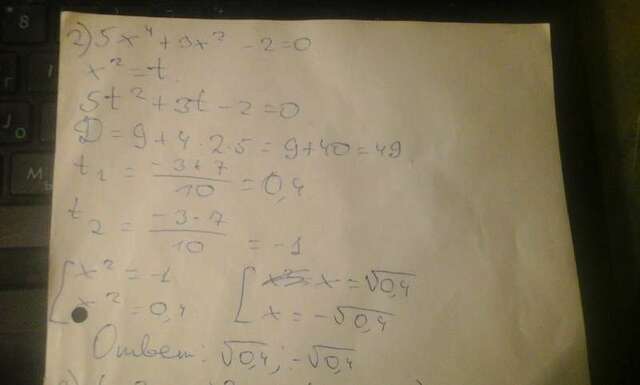 2) 5x⁴ + 3x² - 2 = 0
x² = t
5t² + 3t - 2 = 0
D = 9 + 4 · 2 · 5 = 9 + 40 = 49
t₁ = (-3 + 7)/10 = 0,4
t₂ = (-3 - 7)/10 = -1
[ x² = -1
x² = 0,4
[ x = √0,4
x = -√0,4
Ответ: √0,4; -√0,4